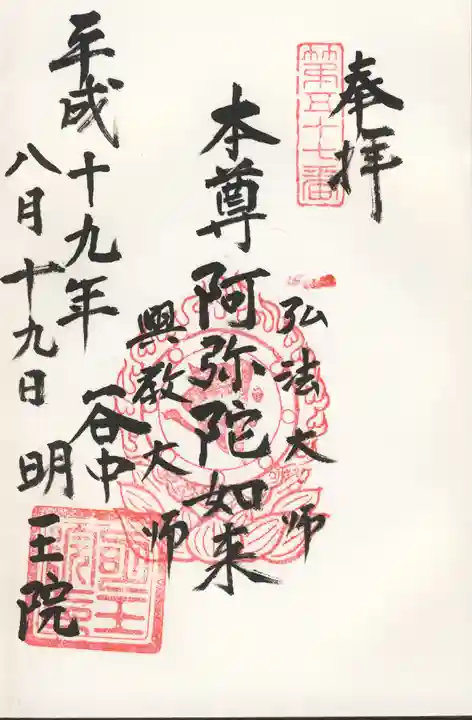 奉拝
第五十七番
弘法大师
本尊阿弥陀如来
興教大师
一谷中
明王院
平成十九年
八月十九日